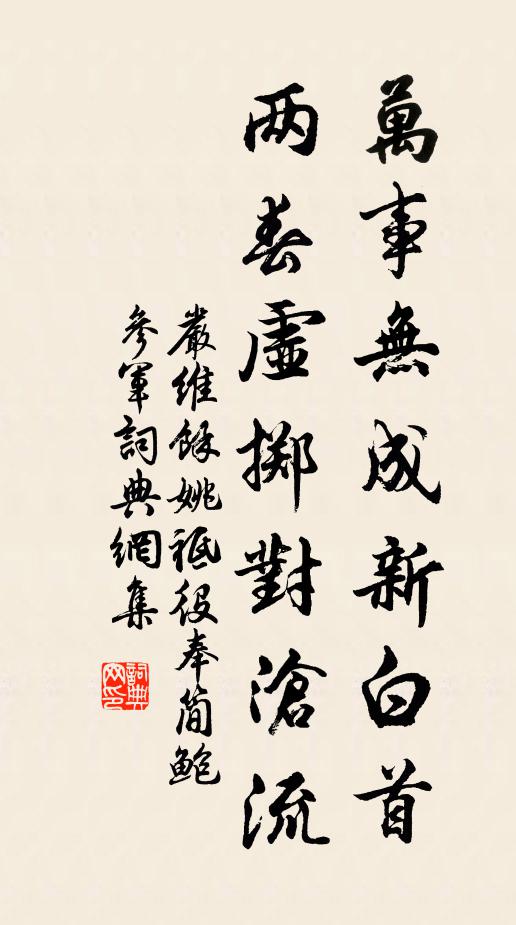 萬事無成新白首
两春虛擲對滄流
嚴維餘姚祗役奉簡鮑
參軍詞典網集
詞典
网印